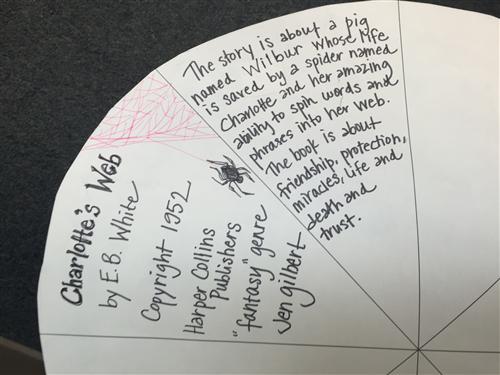 Charlotte's Web
by E.B. White
Copyright 1952
Harper Collins
Publishers
"fantasy" genre
Jen gilbert
The story is about a pig
named Wilbur whose life
is saved by a spider named
Charlotte and her amazing
ability to spin words and
phrases into her web.
The book is about
friendship, protection,
miracles, life and
death and
trust.